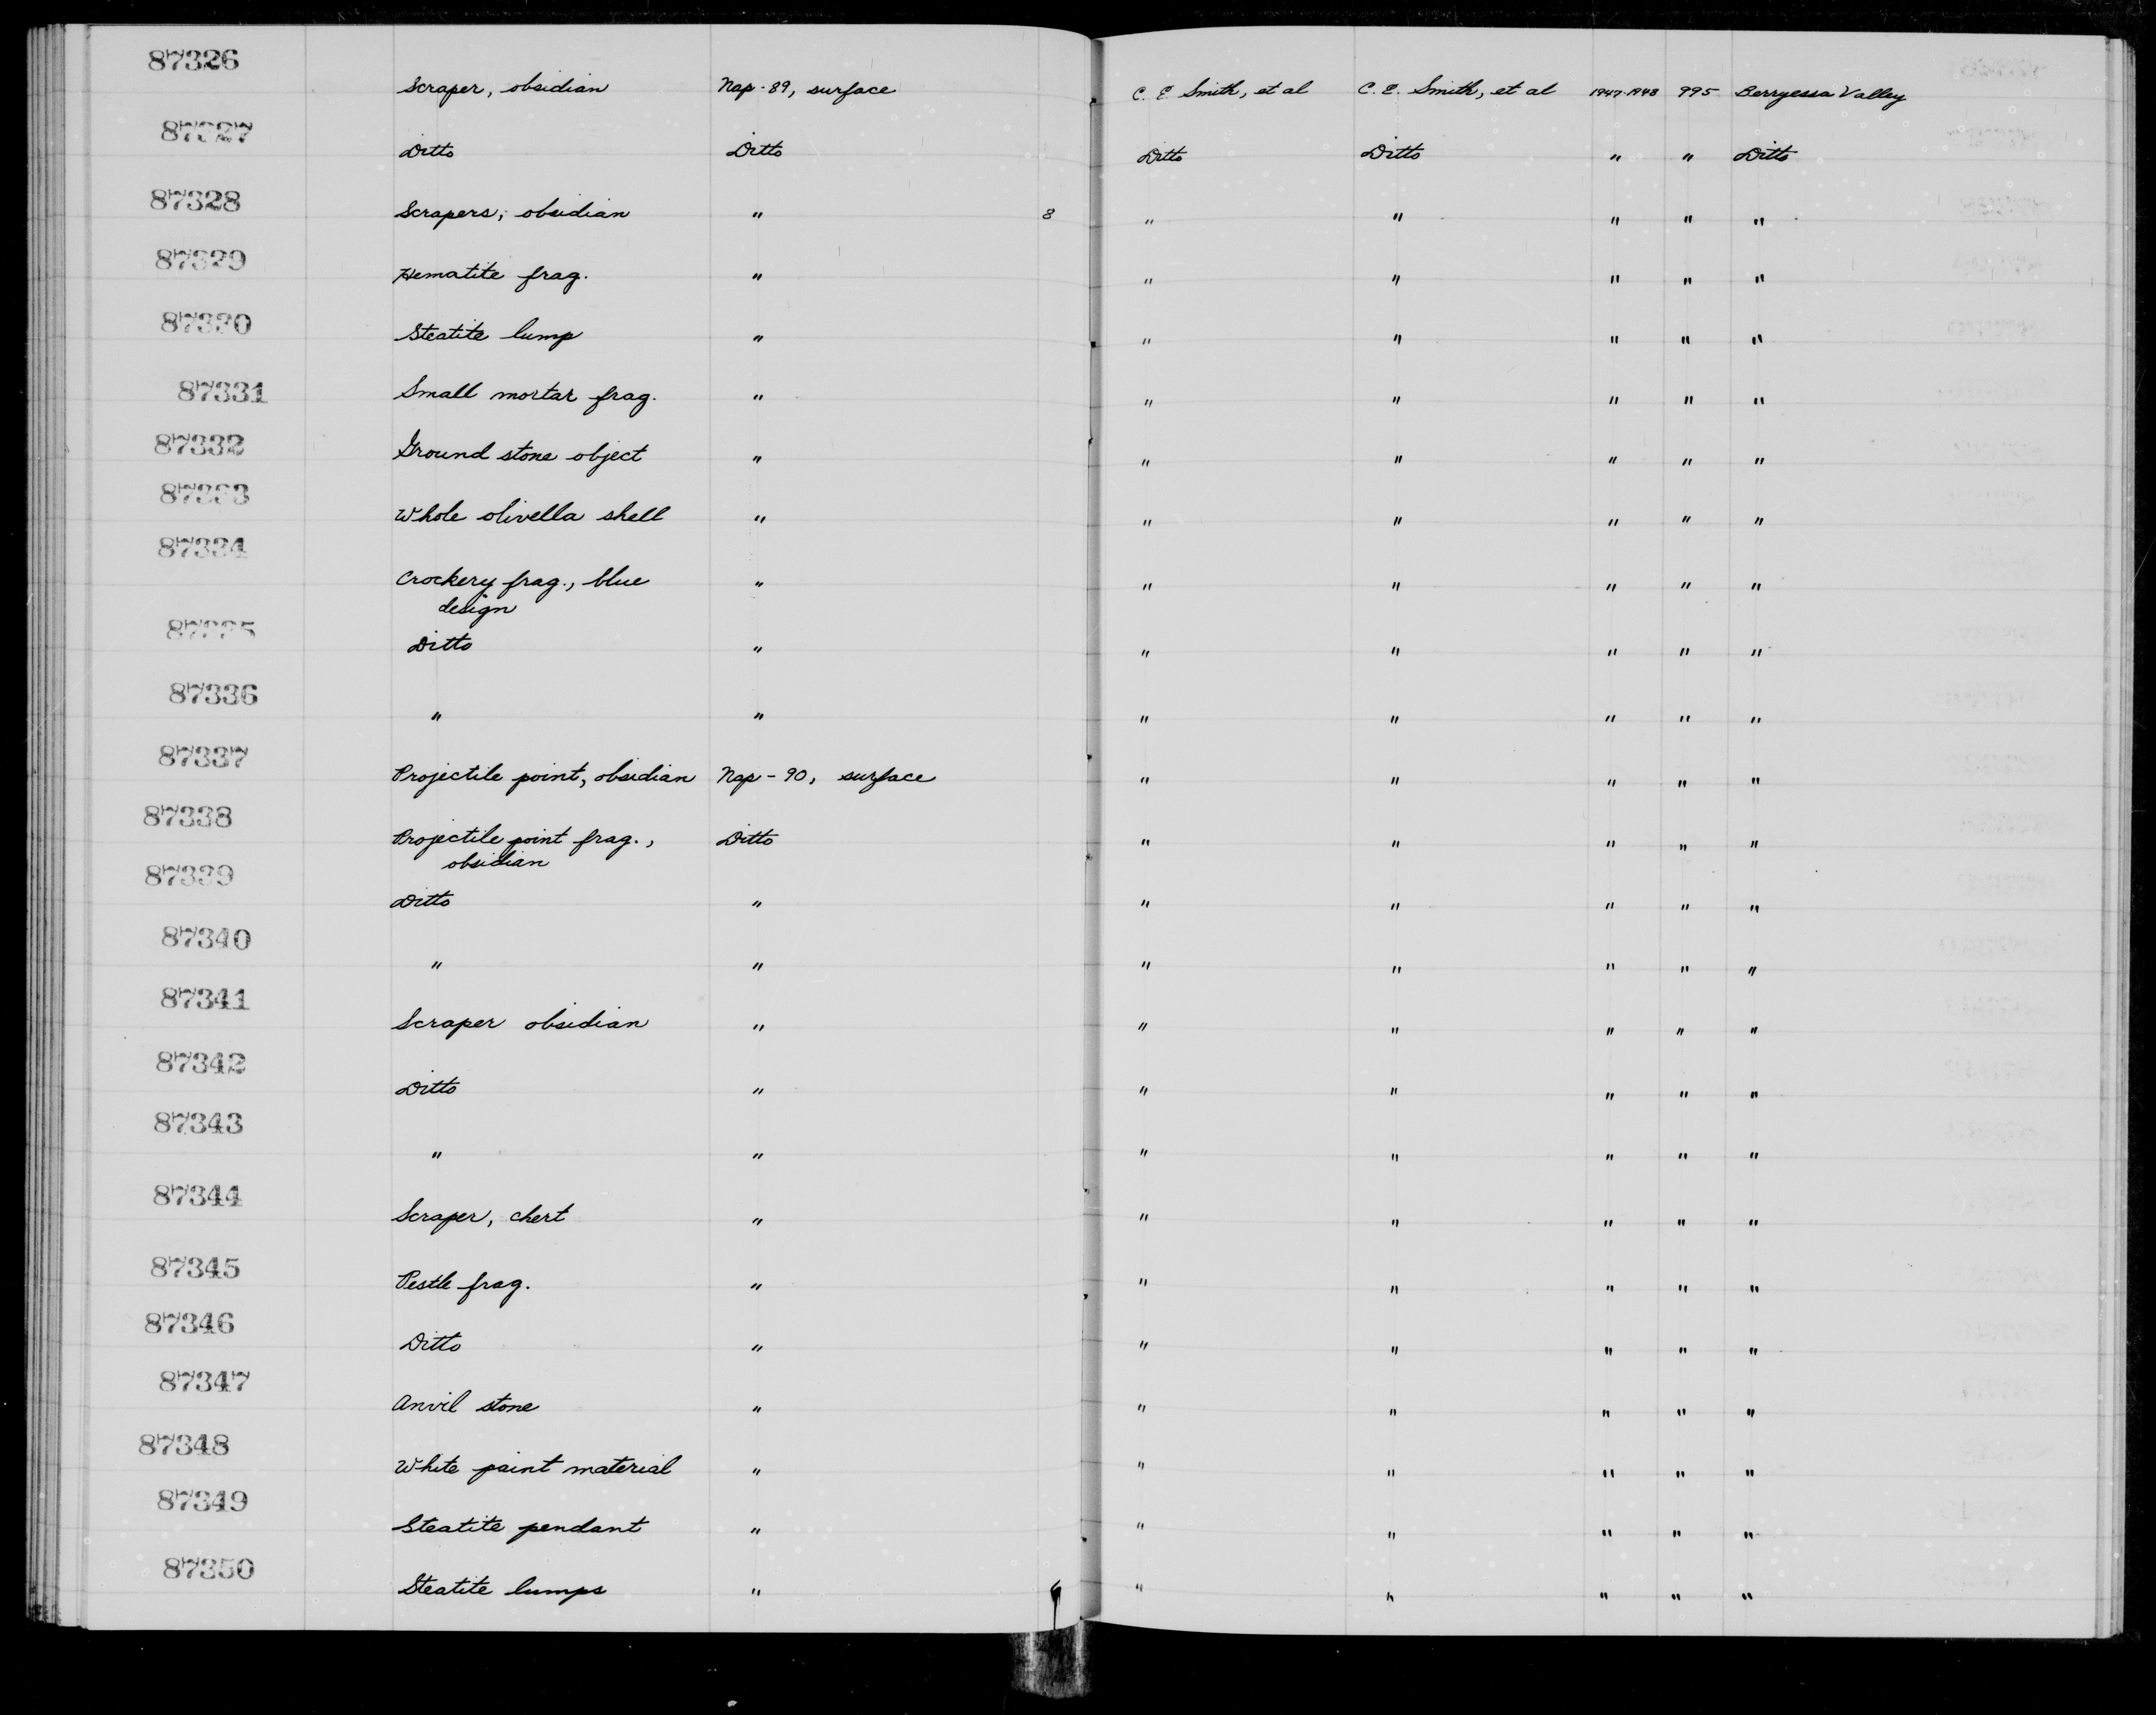 87326
Scraper, obsidian Nap-89, surface C. E Smith, et al C. E. Smith, et al 1947-1948 995 Berryessa Valley
87327
Ditto Ditto Ditto Ditto " " Ditto
87328
Scrapers, obsidian " 8 " " " " "
87329
Hematite frag. " " " " " "
87330
Steatite lump " " " " " "
87331
Small mortar frag. " " " " " "
87332
Ground stone object " " " " " "
87333
Whole olivella shell " " " " " "
87334
Crockery frag., blue " " " " " "
design
87335
Ditto " " " " " "
87336
" " " " " " "
87337
Projectile point, obsidian Nap-90, surface " " " " "
87338
Projectile point frag., Ditto " " " " "
obsidian
87339
Ditto " " " " " "
87340
" " " " " " "
87341
Scraper obsidian " " " " " "
87342
Ditto " " " " " "
87343
" " " " " " "
87344
Scraper, chert " " " " " "
87345
Pestle frag. " " " " " "
87346
Ditto " " " " " "
87347
Anvil stone " " " " " "
87348
White paint material " " " " " "
87349
Steatite pendant " " " " " "
87350
Steatite lumps " " " " " "